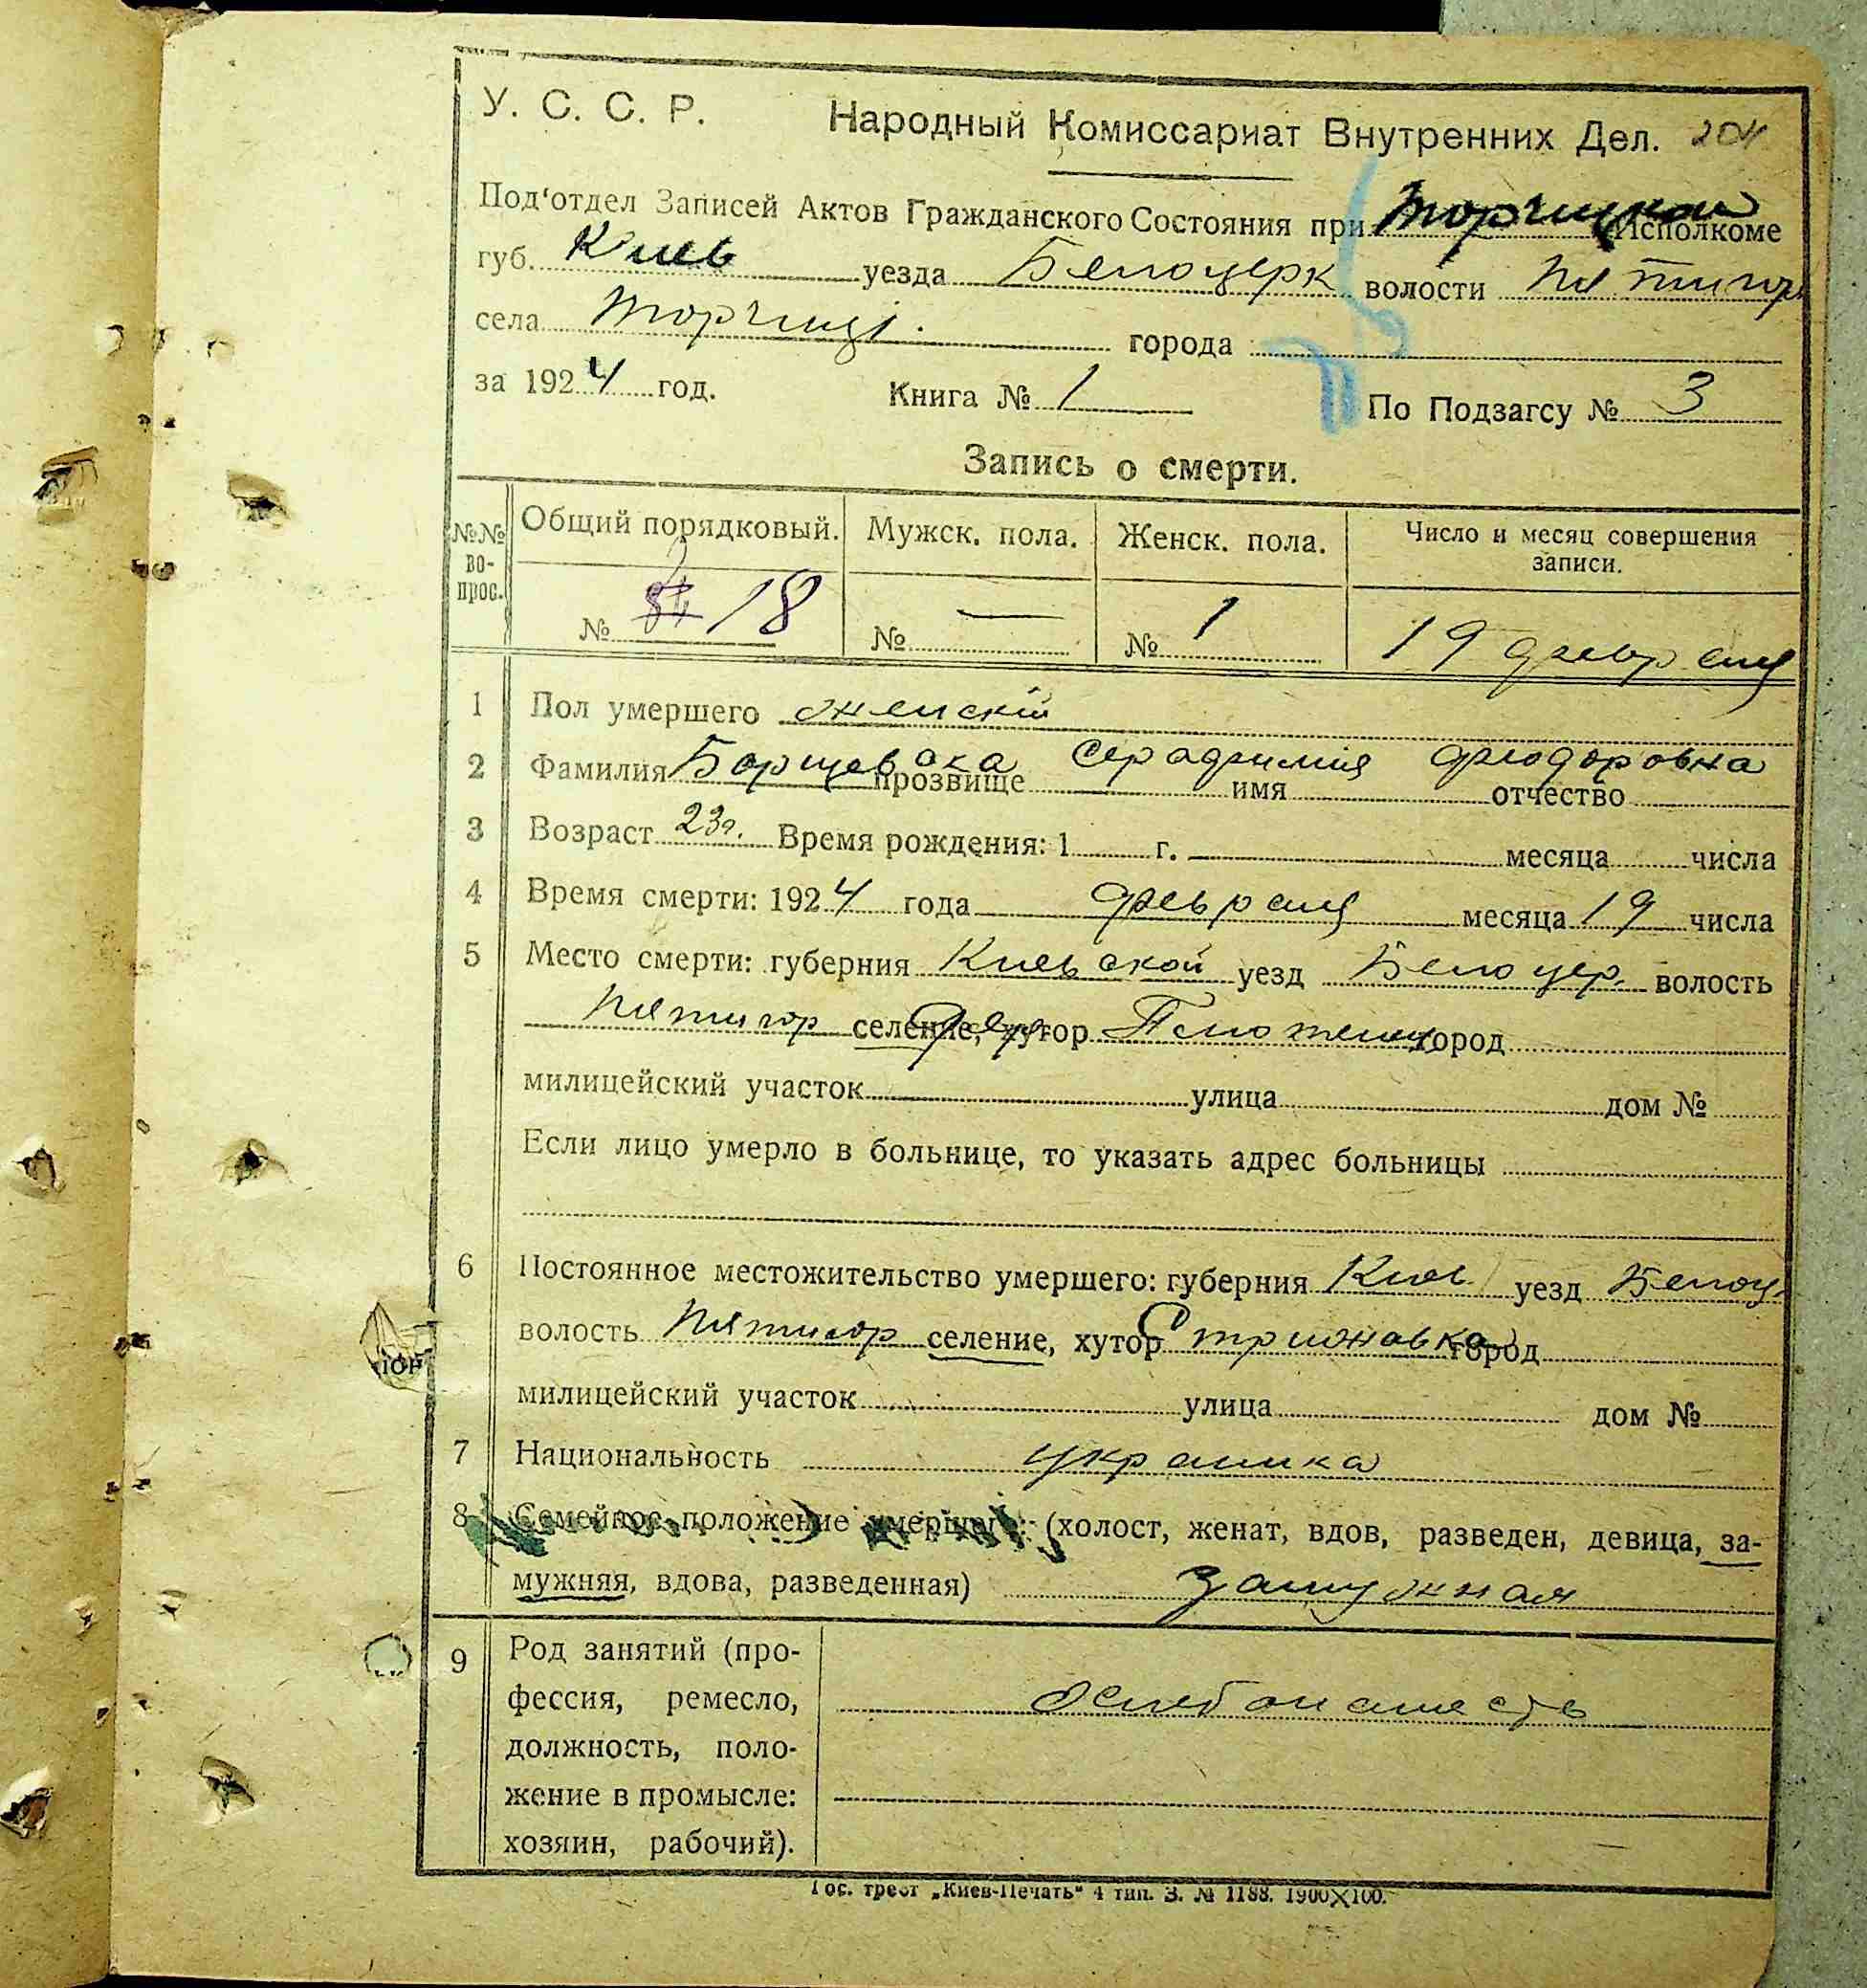 У. С. С. Р. Народный Комиссариат Внутренних Дел. 204
Под'отдел Записей Актов Гражданского Состояния при Торчицком Исполкоме
губ. Киев уезда Белоцерк волости Пятигор
села Торчиці. города
за 1924 год. Книга № 1 По Подзагсу № 3
Запись о смерти.
№№ во-прос. Общий порядковый. Мужск. пола. Женск. пола. Число и месяц совершения записи.
№ 18 № — № 1 19 февраля
1 Пол умершего женскій
2 Фамилия Борщевська прозвище Серафимія имя Феодоровна отчество
3 Возраст 23г. Время рождения: 1 г. месяца числа
4 Время смерти: 1924 года февраля месяца 19 числа
5 Место смерти: губерния Киевской уезд Белоцер. волость
Пятигор селение, хутор город
милицейский участок улица дом №
Если лицо умерло в больнице, то указать адрес больницы
6 Постоянное местожительство умершего: губерния Киев уезд Белоц.
волость Пятигор селение, хутор Стрижовка город
милицейский участок улица дом №
7 Национальность украинка
8 Семейное положение умершего: (холост, женат, вдов, разведен, девица, за-
мужняя, вдова, разведенная) замужная
9 Род занятий (про-
фессия, ремесло,
должность, поло-
жение в промысле:
хозяин, рабочий).
Гос. трест „Киев-Печать“ 4 тип. З. № 1188. 1900X100.